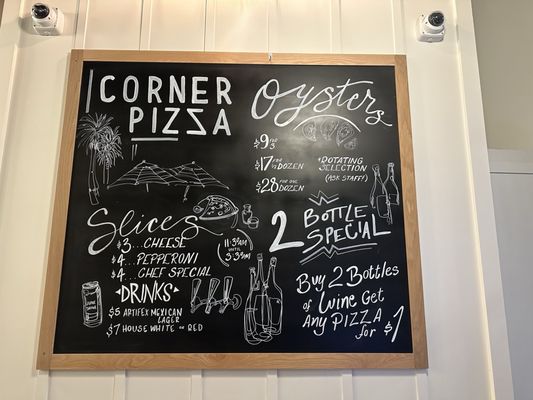 CORNER
PIZZA
Slices
$3...CHEESE
$4...PEPPERONI
$4...CHEF SPECIAL
11:30AM
UNTIL
3:30PM
DRINKS
$5 ARTIFEX MEXICAN
LAGER
$7 HOUSE WHITE OR RED
Oysters
$9 FOR 3
$17 FOR 1/2 DOZEN
$28 FOR ONE DOZEN
*ROTATING
SELECTION
(ASK STAFF!)
2 BOTTLE
SPECIAL
Buy 2 Bottles
of Wine Get
Any Pizza
for $1